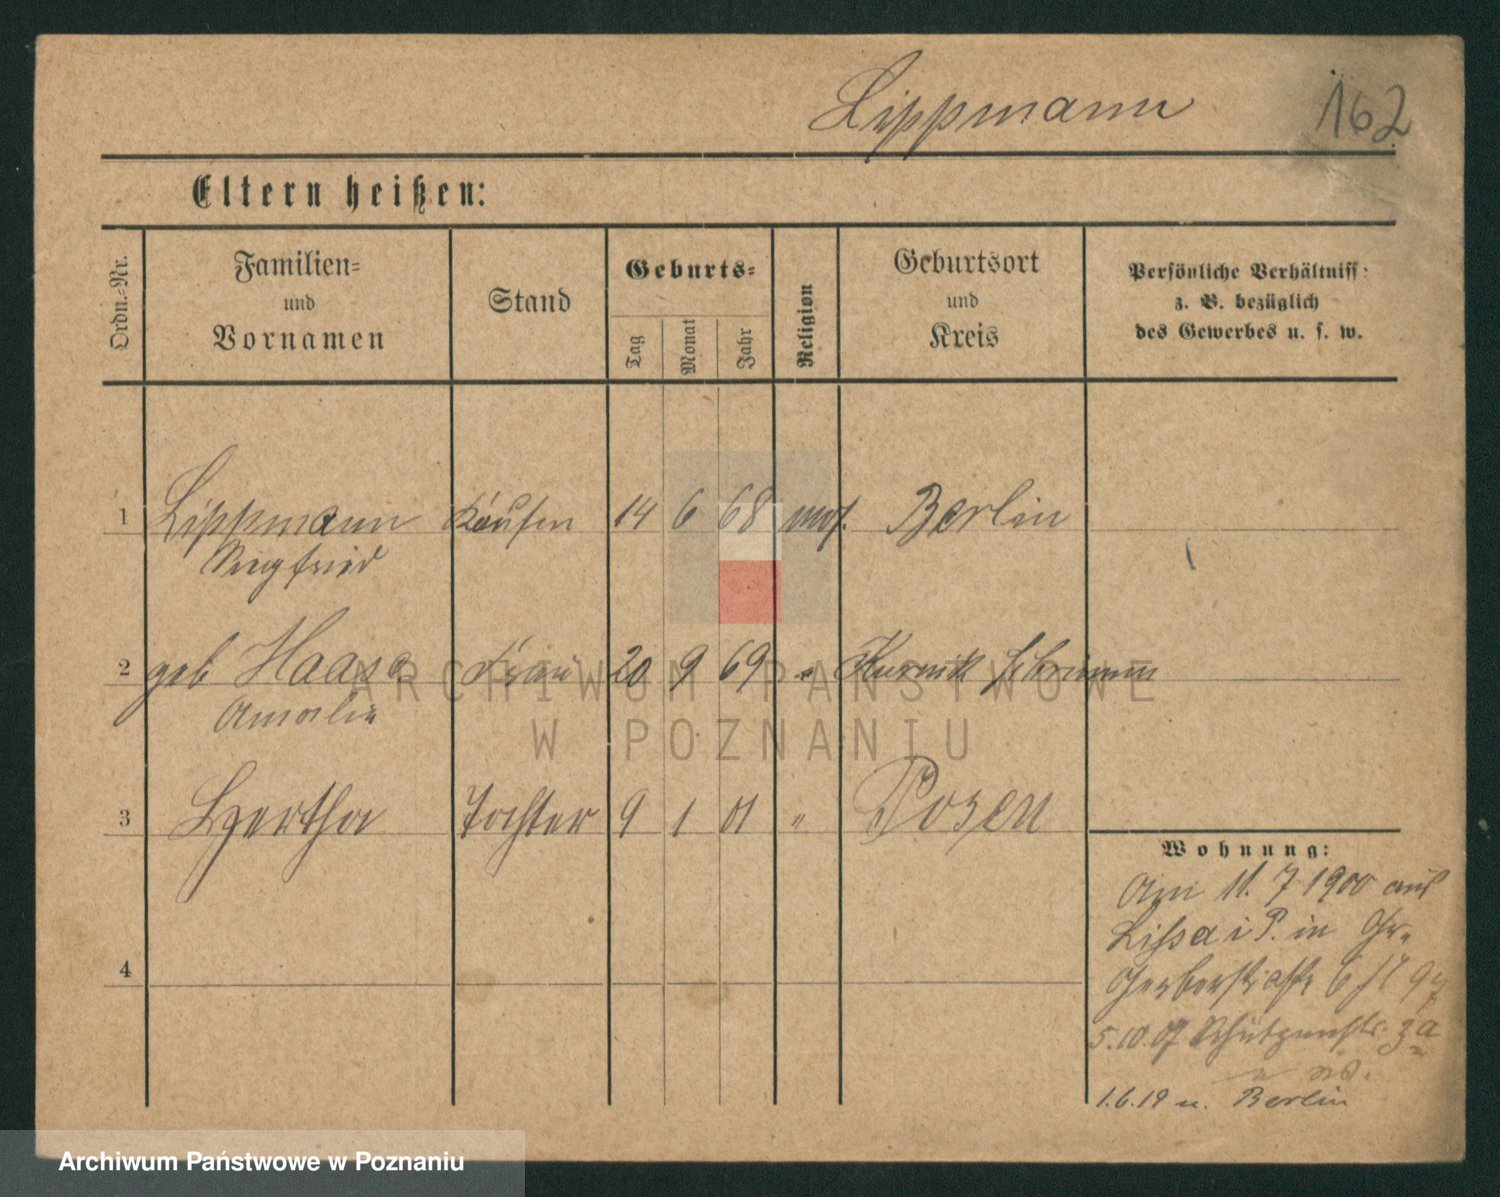 Lippmann 162
Eltern heißen:
Ordn.-Nr.
Familien-
und
Vornamen
Stand
Geburts-
Tag
Monat
Jahr
Religion
Geburtsort
und
Kreis
Persönliche Verhältniss:
z. B. bezüglich
des Gewerbes u. s. w.
1 Lippmann Kaufm 14 6 68 mos. Berlin
Siegfried
2 geb Haase Frau 20 9 69 " Kurnik Schrimm
Amalie
3 Hertha Tochter 9 1 01 " Posen
4
Wohnung:
Am 11. 7 1900 aus
Lissa i P. in Gr.
Gerberstraße 6
5.10.07 3a
1.6.19 n. Berlin
ARCHIWUM PAŃSTWOWE
W POZNANIU
Archiwum Państwowe w Poznaniu